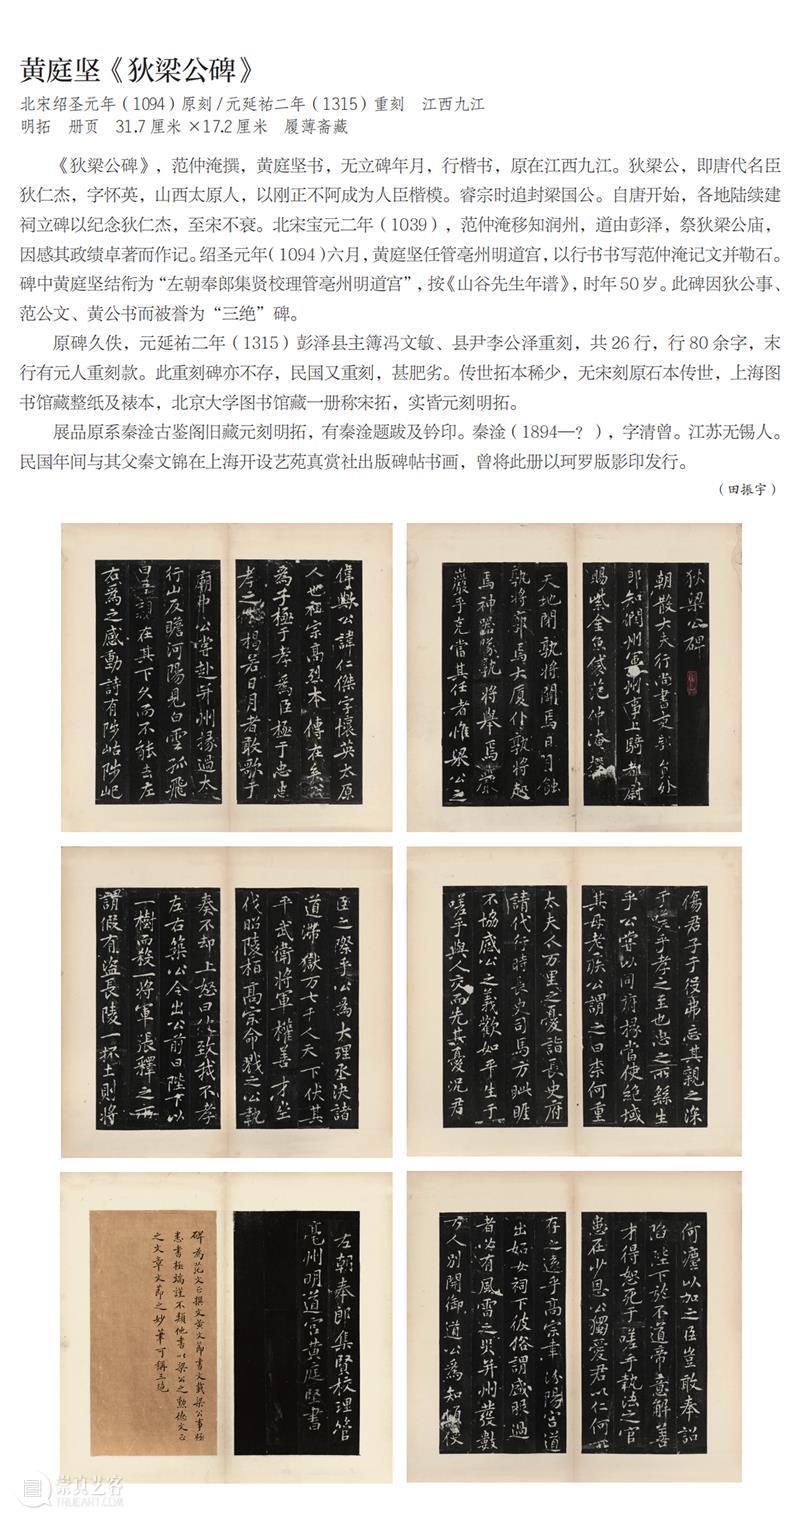 黄庭坚《狄梁公碑》
北宋绍圣元年（1094）原刻/元延祐二年（1315）重刻 江西九江
明拓 册页 31.7厘米×17.2厘米 履薄斋藏
《狄梁公碑》，范仲淹撰，黄庭坚书，无立碑年月，行楷书，原在江西九江。狄梁公，即唐代名臣
狄仁杰，字怀英，山西太原人，以刚正不阿成为人臣楷模。睿宗时追封梁国公。自唐开始，各地陆续建
祠立碑以纪念狄仁杰，至宋不衰。北宋宝元二年（1039），范仲淹移知润州，道由彭泽，祭狄梁公庙，
因感其政绩卓著而作记。绍圣元年（1094）六月，黄庭坚任管亳州明道宫，以行书书写范仲淹记文并勒石。
碑中黄庭坚结衔为“左朝奉郎集贤校理管亳州明道宫”，按《山谷先生年谱》，时年50岁。此碑因狄公事、
范公文、黄公书而被誉为“三绝”碑。
原碑久佚，元延祐二年（1315）彭泽县主簿冯文敏、县尹李公泽重刻，共26行，行80余字，末
行有元人重刻款。此重刻碑亦不存，民国又重刻，甚肥劣。传世拓本稀少，无宋刻原石本传世，上海图
书馆藏整纸及裱本，北京大学图书馆藏一册称宋拓，实皆元刻明拓。
展品原系秦淦古鉴阁旧藏元刻明拓，有秦淦题跋及钤印。秦淦（1894—？），字清曾。江苏无锡人。
民国年间与其父秦文锦在上海开设艺苑真赏社出版碑帖书画，曾将此册以珂罗版影印发行。
（田振宇）
狄梁公碑
朝散大夫行尚書吏部員外
郎知潤州軍州事上騎都尉
賜紫金魚袋范仲淹撰
天地閉孰將闢焉日月蝕
孰將廓焉大厦仆孰將起
焉神器墜孰將舉焉巖
巖乎克當其任者惟梁公之
偉歟公諱仁傑字懷英太原
人也祖宗高烈本傳在矣公
為子極于孝為臣極于忠忠
孝之外揭若日月者敢歌于
廟中公嘗赴并州掾過太
行山反瞻河陽見白雲孤飛
曰吾親在其下久而不能去左
右為之感動詩有陟岵陟屺
傷君子于役弗忘其親之深
乎孝之至也忠之所繇生
乎公嘗以同府掾當使絕域
其母老疾公謂之曰柰何重
太夫人万里之憂詣長史府
請代行時長史司馬方眦睚
不協感公之義歡如平生于
嗟乎與人交而先其憂況君
臣之際乎公為大理丞決諸
道滯獄万七千人天下伏其
平武衛將軍權善才坐
伐昭陵柏高宗命戮之公執
奏不却上怒曰彼致我不孝
左右築公令出公前曰陛下以
一樹而殺一將軍張釋之所
謂假有盜長陵一抔土則將
何灋以加之臣豈敢奉詔
陷陛下於不道帝意解善
才得恕死于嗟乎執法之官
患在少恩公獨愛君以仁何所
存之遠乎高宗幸汾陽宮道
出妬女祠下彼俗謂盛服過
者必有風雷之災并州發數
万人別開御道公為知頓使
左朝奉郎集賢校理管
亳州明道宮黃庭堅書
碑為范文正撰文黃文節書文載梁公事極
悉書極端謹不類他書以梁公之勲德文正
之文章文節之妙筆可稱三絕
崇真艺客
TRUEART.COM